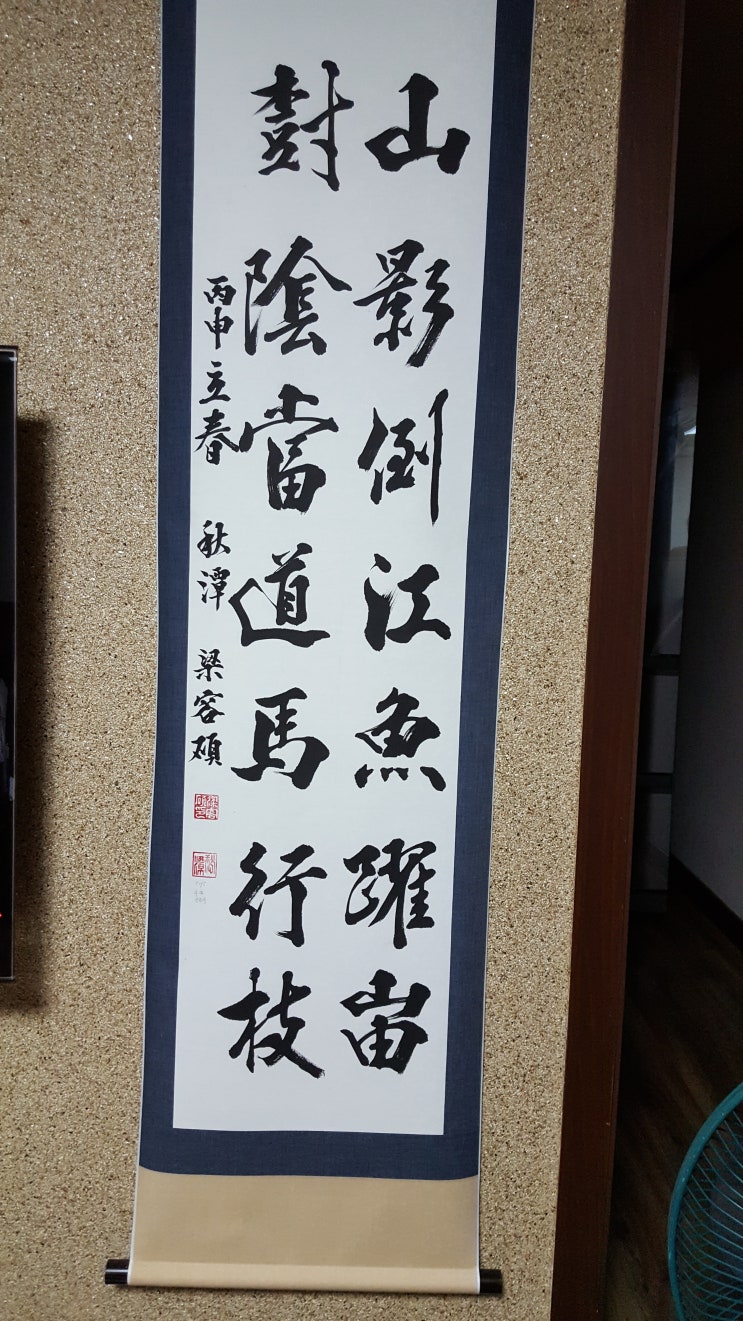 山影倒江魚躍峀
樹陰當道馬行枝
丙申立春 秋潭 梁容碩